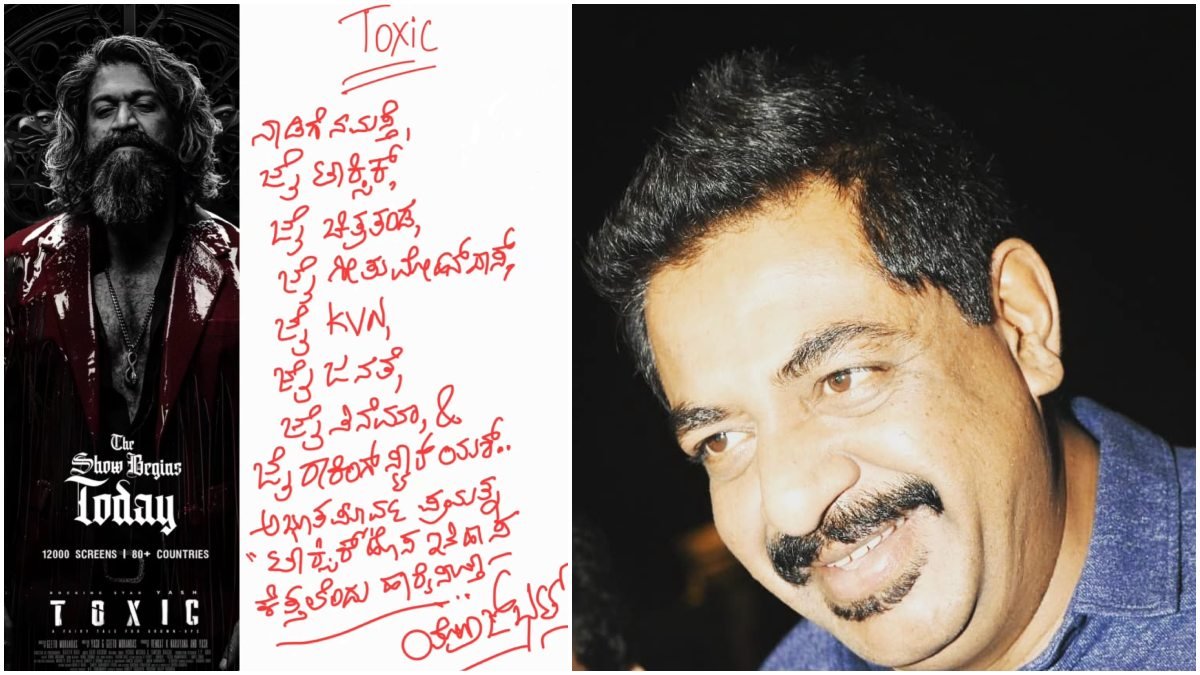 The
Show Begins
Today
12000 SCREENS | 80+ COUNTRIES
ROCKING STAR YASH
TOXIC
A FAIRY TALE FOR GROWN-UPS
Toxic
ನಾಡಿಗೆ ನಮಸ್ತೆ,
ಜೈ ಟಾಕ್ಸಿಕ್,
ಜೈ ಚಿತ್ರತಂಡ,
ಜೈ ಗೀತು ಮೋಹನ್ ದಾಸ್,
ಜೈ KVN,
ಜೈ ಜನತೆ,
ಜೈ ಸಿನೆಮಾ, &
ಜೈ ರಾಕಿಂಗ್ ಸ್ಟಾರ್ ಯಶ್..
ಅಭೂತಪೂರ್ವ ಪ್ರಯತ್ನ
"ಟಾಕ್ಸಿಕ್" ಹೊಸ ಇತಿಹಾಸ
ಕೆತ್ತಲೆಂದು ಹಾರೈಸುತ್ತಾ..
ಯೋಗರಾಜ್ ಭಟ್